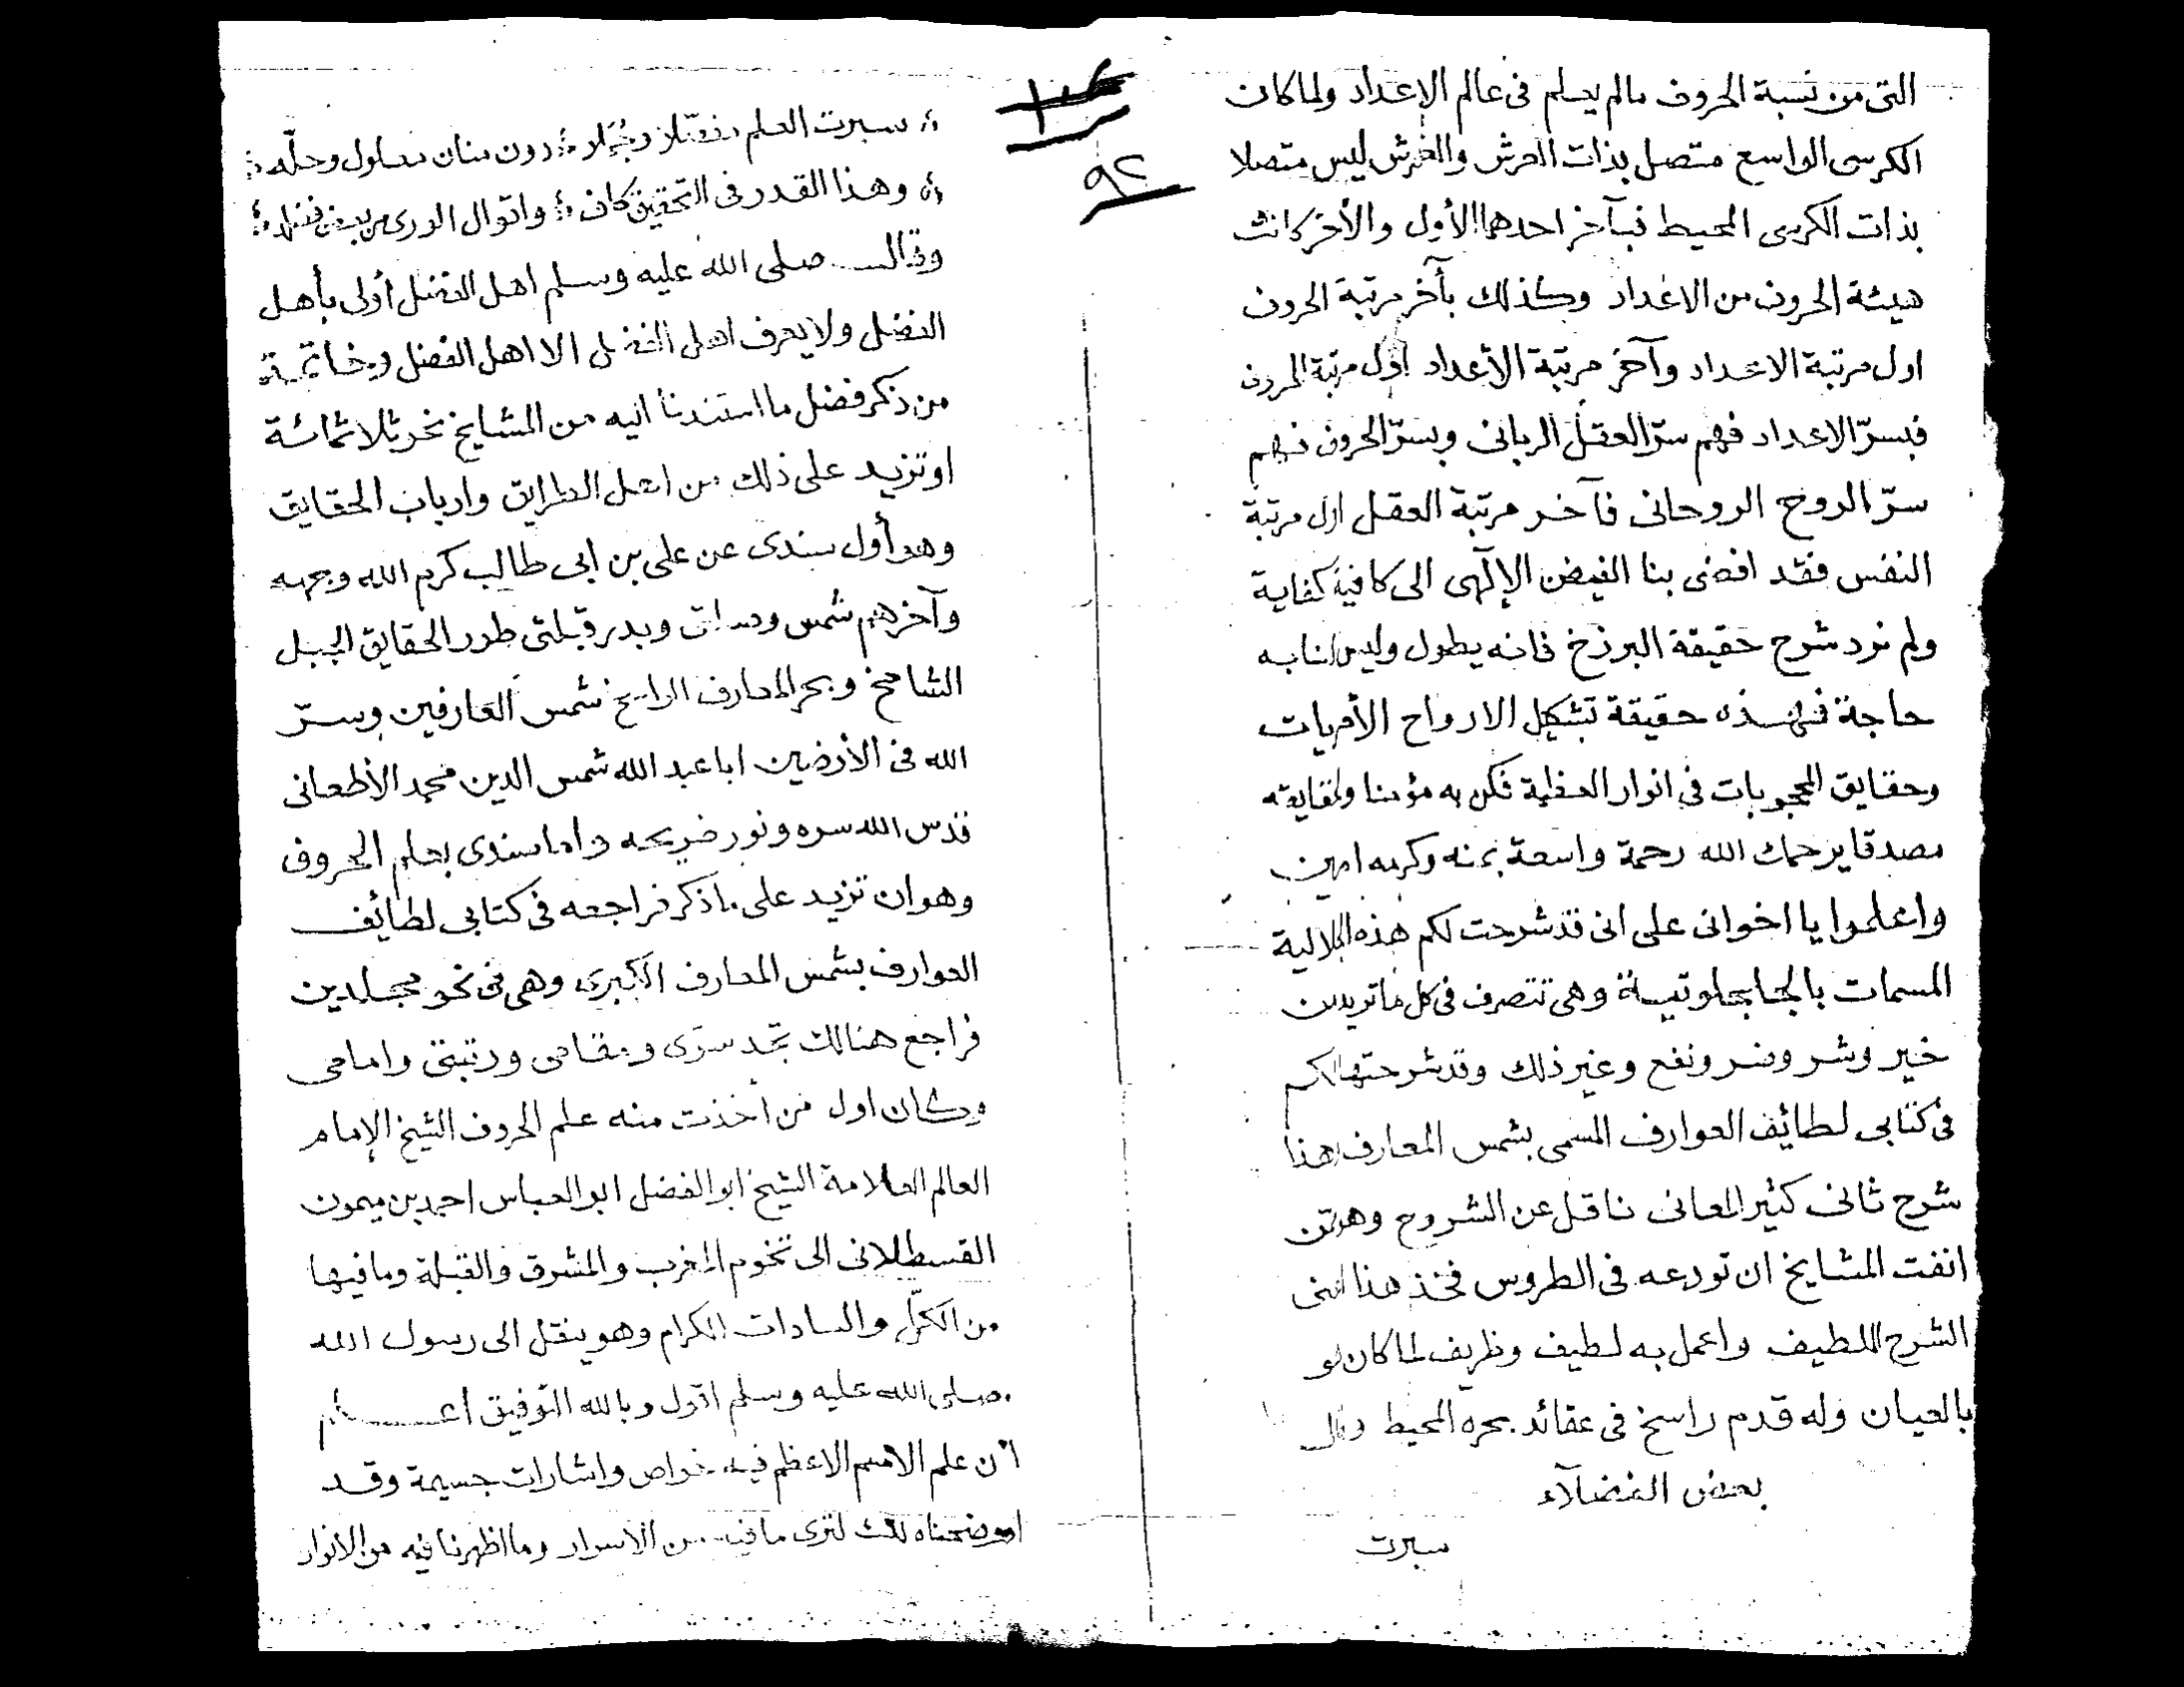 التى من نسبة الحروف مالم يعلم فى عالم الاعداد ولما كان
الكرسى الواسع متصل بذات العرش والعرش ليس متصلا
بذات الكرسى المحيط فبآخر احدهما الأول والأخر كانت
هيئة الحروف من الاعداد وكذلك بآخر مرتبة الحروف
اول مرتبة الاعداد وآخر مرتبة الأعداد اول مرتبة الحروف
فبسرّ الاعداد فهم سرّ العقل الربانى وبسرّ الحروف فهم
سرّ الروح الروحانى فآخر مرتبة العقل اول مرتبة
النفس فقد افضى بنا الفيض الإلهى الى كافية كفاية
ولم نرد شرح حقيقة البرزخ فانه يطول وليس لنا به
حاجة فهذه حقيقة تشكيل الارواح الأمريات
وحقايق المحجوبات فى انوار العظمة فكن به مؤمنا ولحقايقه
مصدقا يرحمك الله رحمة واسعة بمنه وكرمه امين
واعلموا يا اخوانى على انى قد شرحت لكم هذه
المسمات بالجلجلوتية وهى تتصرف فى كل ما تريد من
خير وشر وضر ونفع وغير ذلك وقد شرحتها لكم
فى كتابى لطائف العوارف المسمى بشمس المعارف هذا
شرح ثانى كثير المعانى ناقل عن الشروح
انفت المشايخ ان تودعه فى الطروس فخذ هذا
الشرح اللطيف واعمل به لطيف وظريف لما كان
بالعيان وله قدم راسخ فى عقائد بحره المحيط وقال
بعض الفضلآء
سبرت
١٠٤
٩٢
سبرت العلم تفصّلا وجُمَلا
وهذا القدر فى التحقيق كاف واقوال الورى
وقال صلى الله عليه وسلم اهل الفضل أولى بأهل
الفضل ولا يعرف اهل الفضل الا اهل الفضل وخاتمة
من ذكر فضل ما استندنا اليه من المشايخ نحو ثلاثمائة
او تزيد على ذلك من اهل الطرايق وارباب الحقايق
وهو أول سندى عن على بن ابى طالب كرم الله وجهه
وآخرهم شمس وبدر قبلتى طور الحقايق الجبل
الشامخ وبحر المعارف الراسخ شمس العارفين وسرّ
الله فى الأرضين ابا عبد الله شمس الدين محمد الأطعانى
قدس الله سره ونور ضريحه واما سندى بعلم الحروف
وهو ان تزيد على ما ذكر فراجعه فى كتابى لطائف
العوارف بشمس المعارف الكبرى وهى فى نحو مجلدين
فراجع هنالك تجد سرّى ومقامى ورتبتى وامامى
وكان اول من أخذت منه علم الحروف الشيخ الإمام
العالم العلامة الشيخ ابو الفضل ابو العباس احمد بن ميمون
القسطلانى الى تخوم المغرب والمشرق والقبلة وما فيها
من الكمّل والسادات الكرام وهو ينقل الى رسول الله
صلى الله عليه وسلم اقول وبالله التوفيق أعلم
ان علم الاسم الاعظم فيه خواص واشارات جسيمة وقد
اوضحناه لك لترى ما فيه من الاسرار وما اظهرنا فيه من الانوار